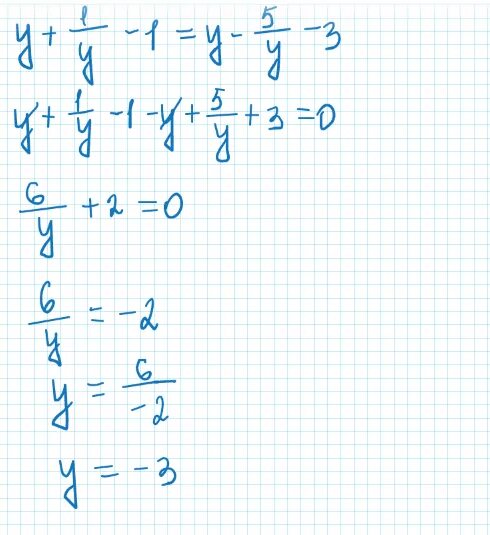 y + 1/y - 1 = y - 5/y - 3
y + 1/y - 1 - y + 5/y + 3 = 0
6/y + 2 = 0
6/y = -2
y = 6/-2
y = -3